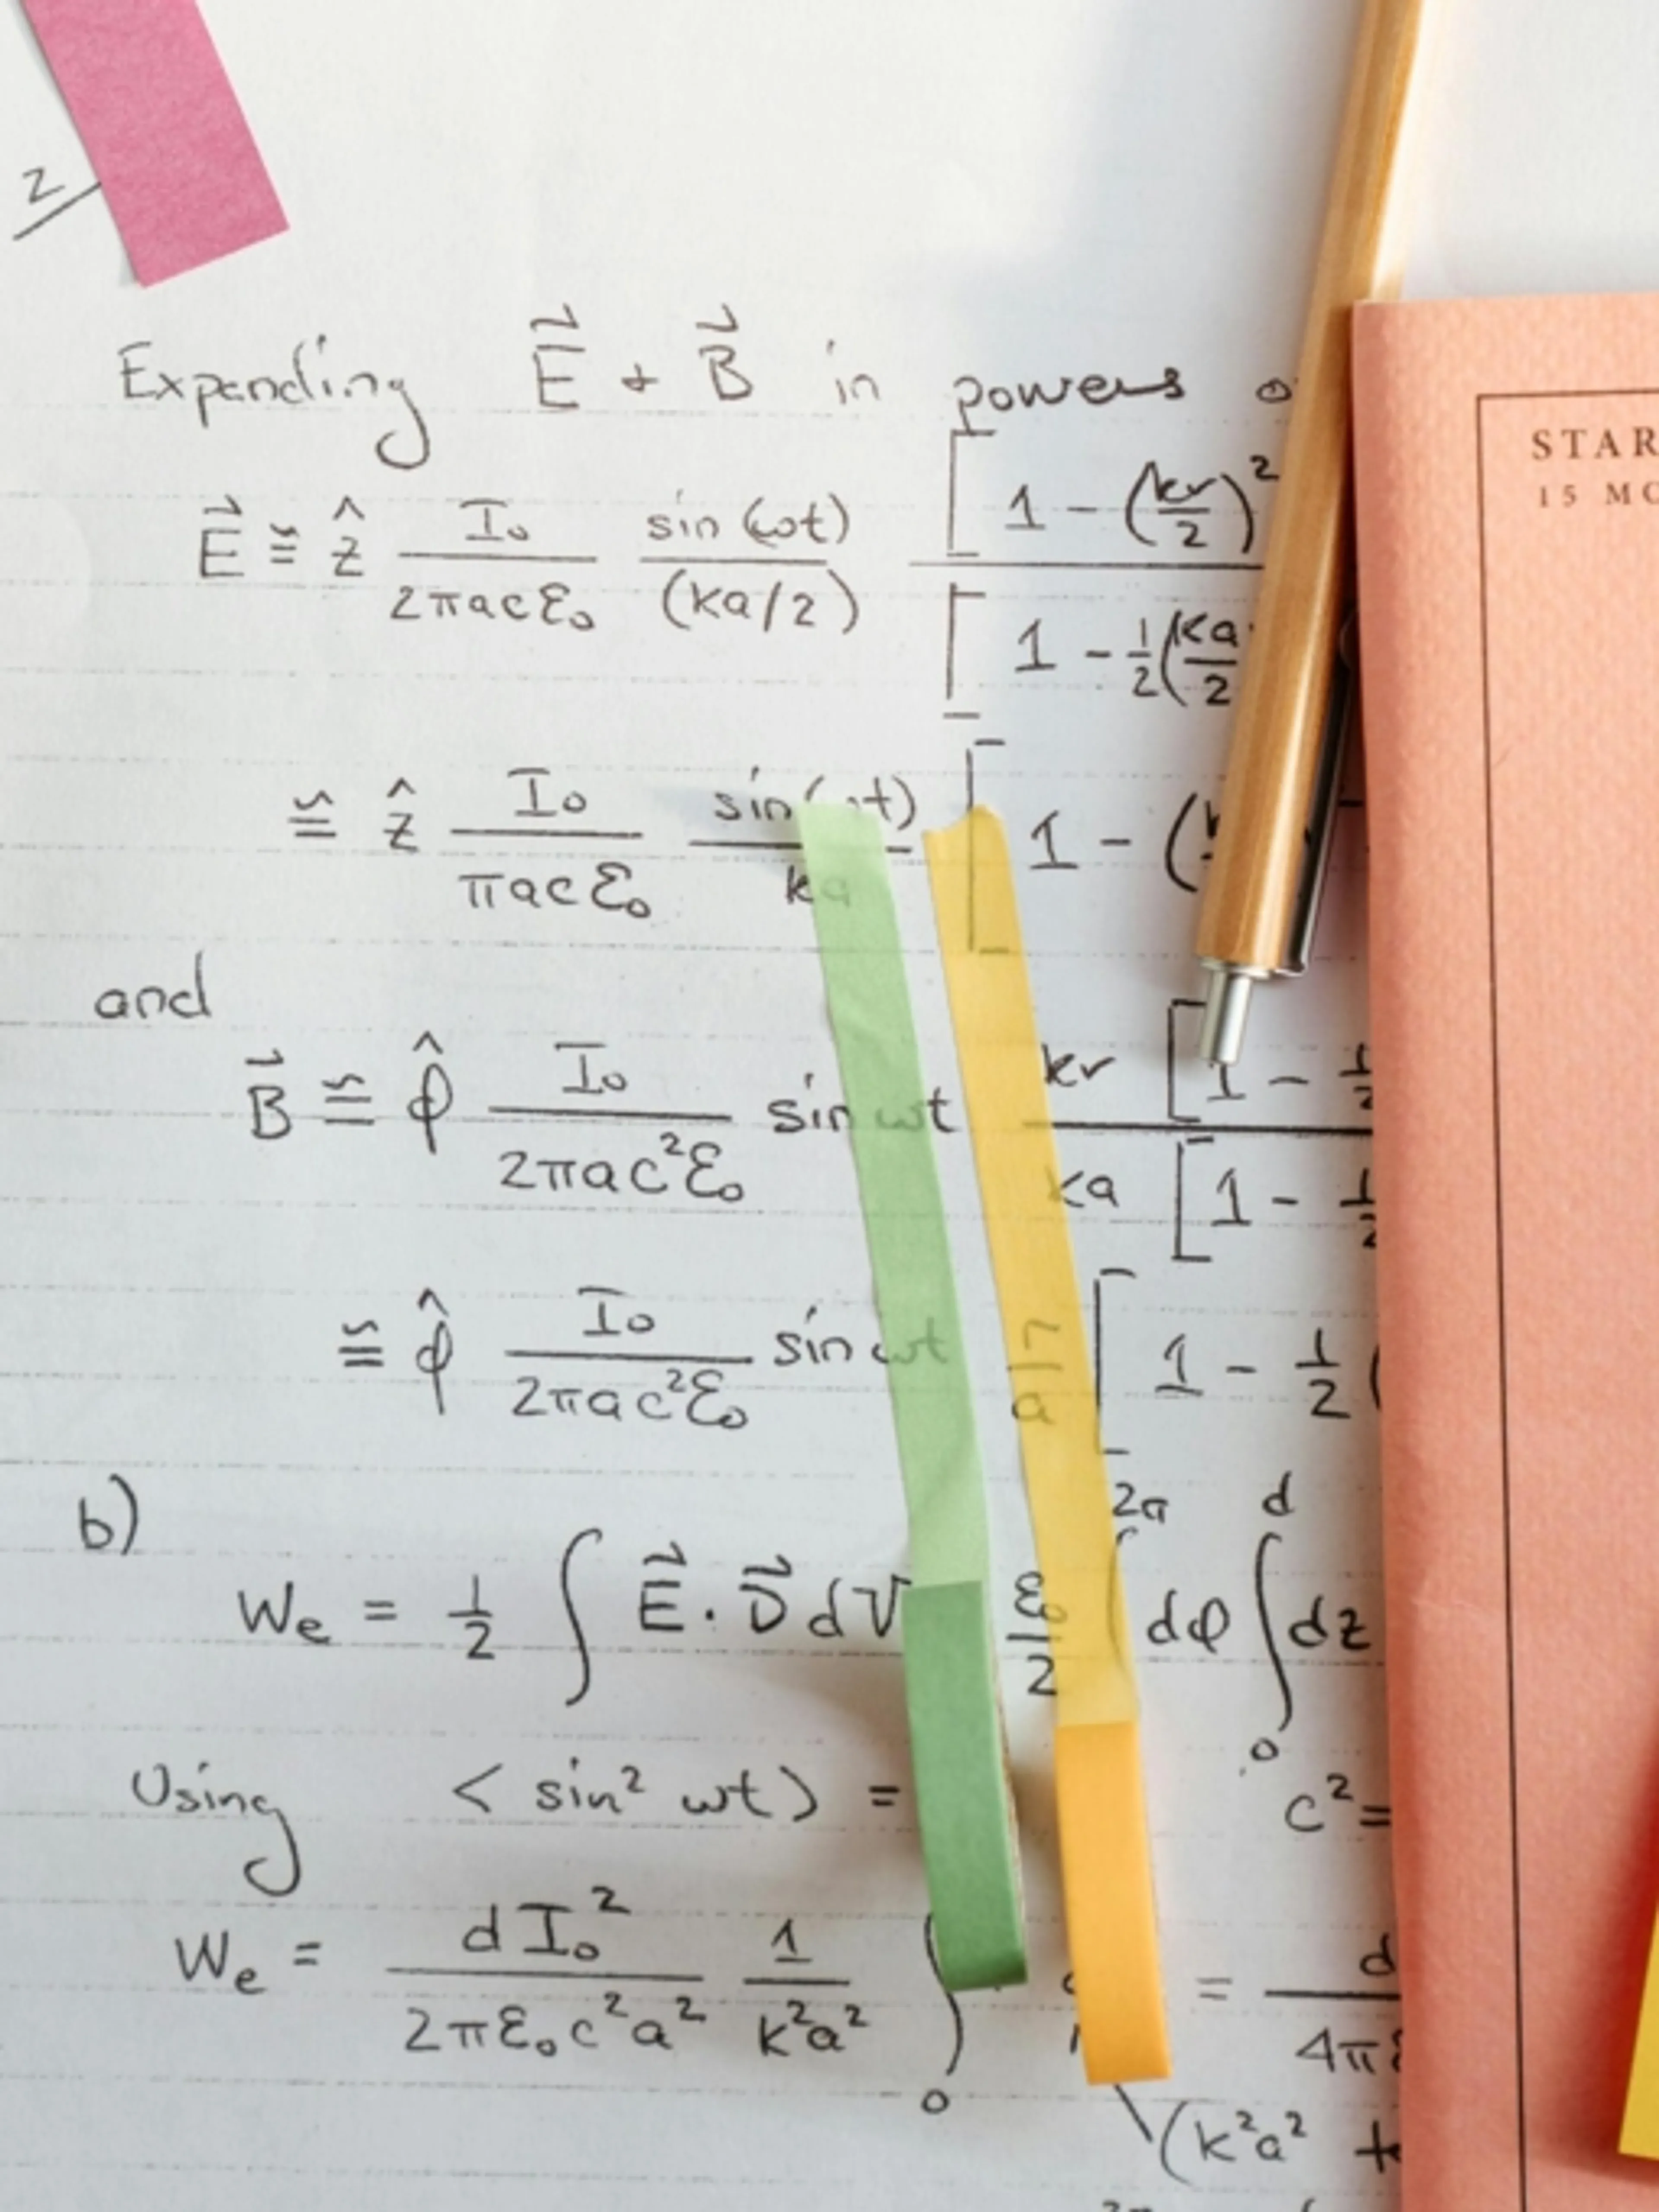 2
Expanding E⃗ + B⃗ in powers
E⃗ ≅ ẑ I₀/(2πacε₀) sin(ωt)/(ka/2) [1 - (kr/2)²
[1 - ½(ka/2
≅ ẑ I₀/(πacε₀) sin(ωt)/ka [1 - (
and
B⃗ ≅ φ̂ I₀/(2πac²ε₀) sin ωt kr [1 - ½
ka [1 - ½
≅ φ̂ I₀/(2πac²ε₀) sin ωt r/a [1 - ½ (
b)
Wₑ = ½ ∫ E⃗ · D⃗ dV ε₀/2 ∫ 2π dφ ∫₀ᵈ dz
Using < sin² ωt > = c² =
Wₑ = d I₀²/(2πε₀c²a²) 1/(k²a²) ∫₀ = d/4π
(k²a²
STAR
15 MO